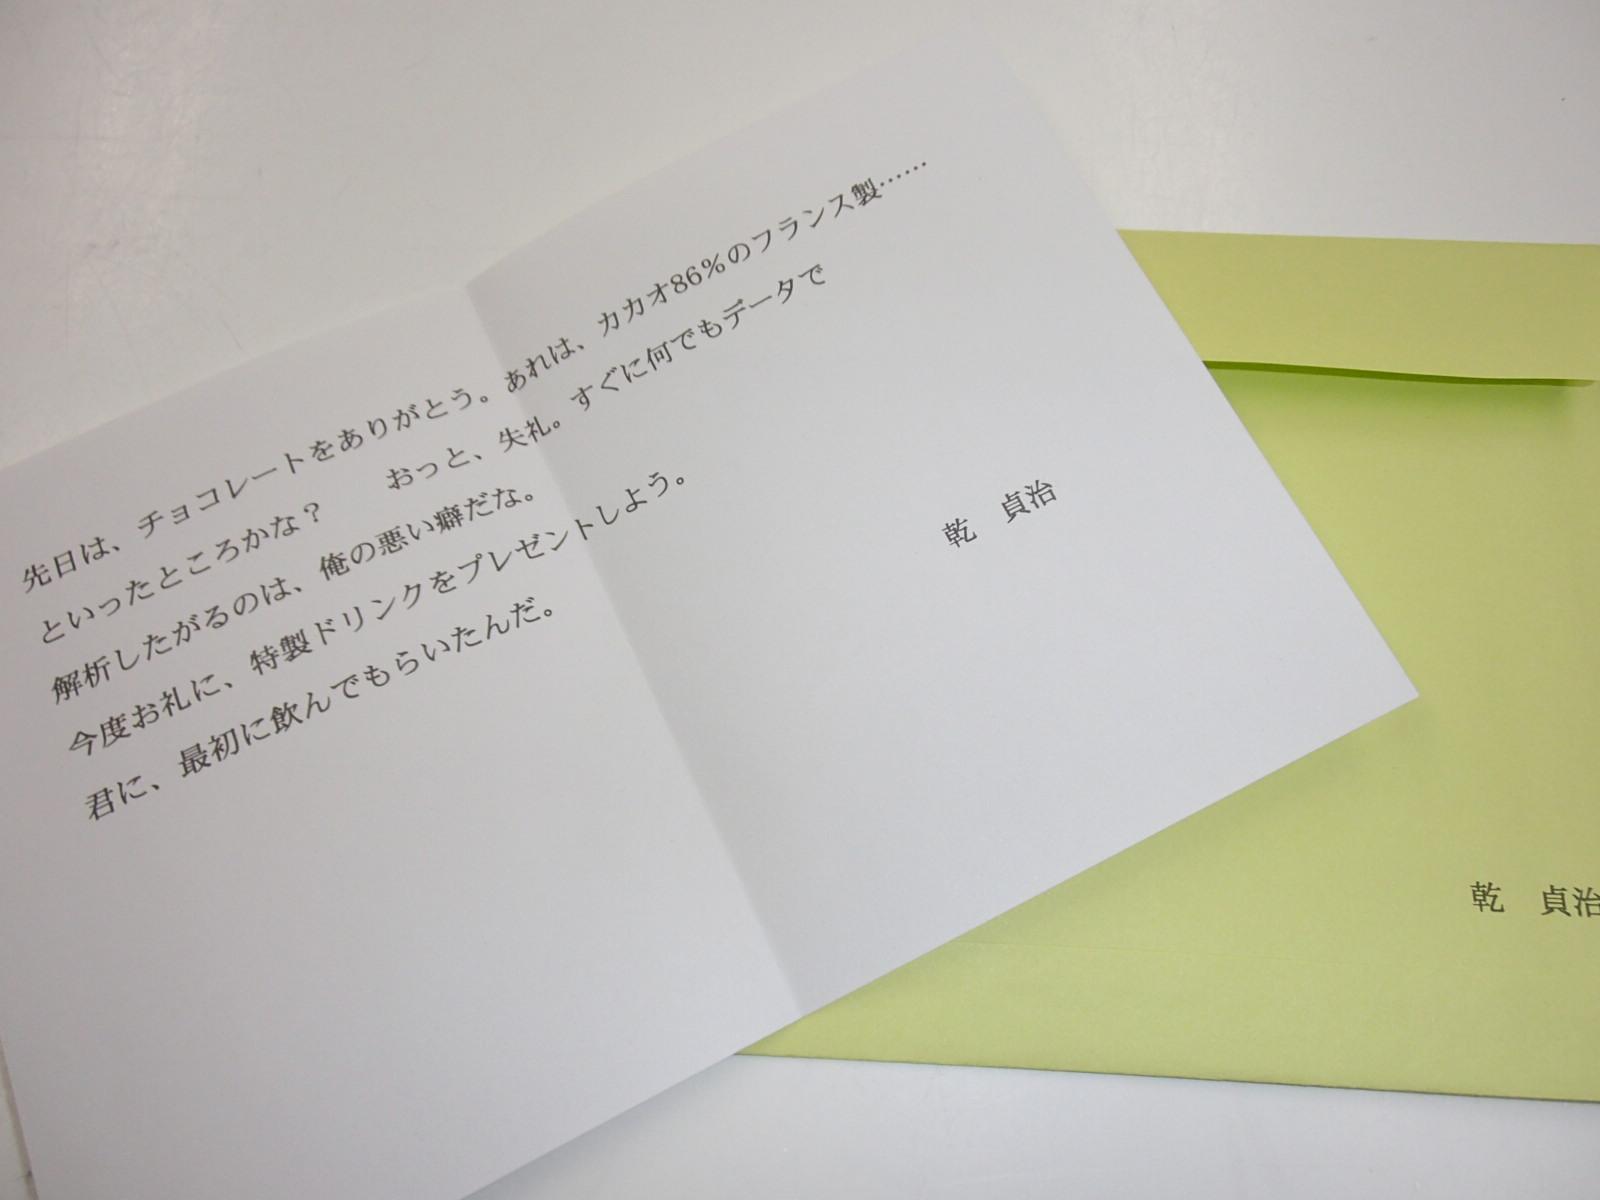 先日は、チョコレートをありがとう。あれは、カカオ86%のフランス製……
といったところかな?　おっと、失礼。すぐに何でもデータで
解析したがるのは、俺の悪い癖だな。
今度お礼に、特製ドリンクをプレゼントしよう。
君に、最初に飲んでもらいたんだ。
乾　貞治
乾　貞治